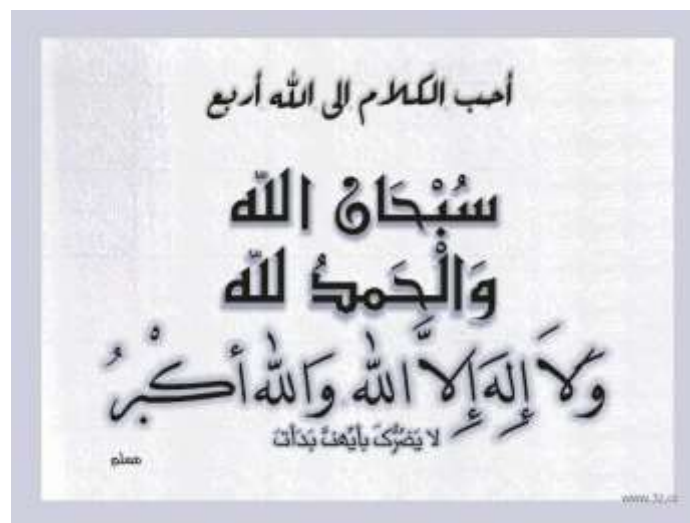 أحب الكلام الى الله أربع
سُبْحَانَ الله
وَالْحَمدُ لله
وَلاَ إِلَهَ إِلاَّ الله وَالله أَكْبْرُ
لا يَضُرُّكَ بأيِّهنَّ بَدَأتَ
مسلم